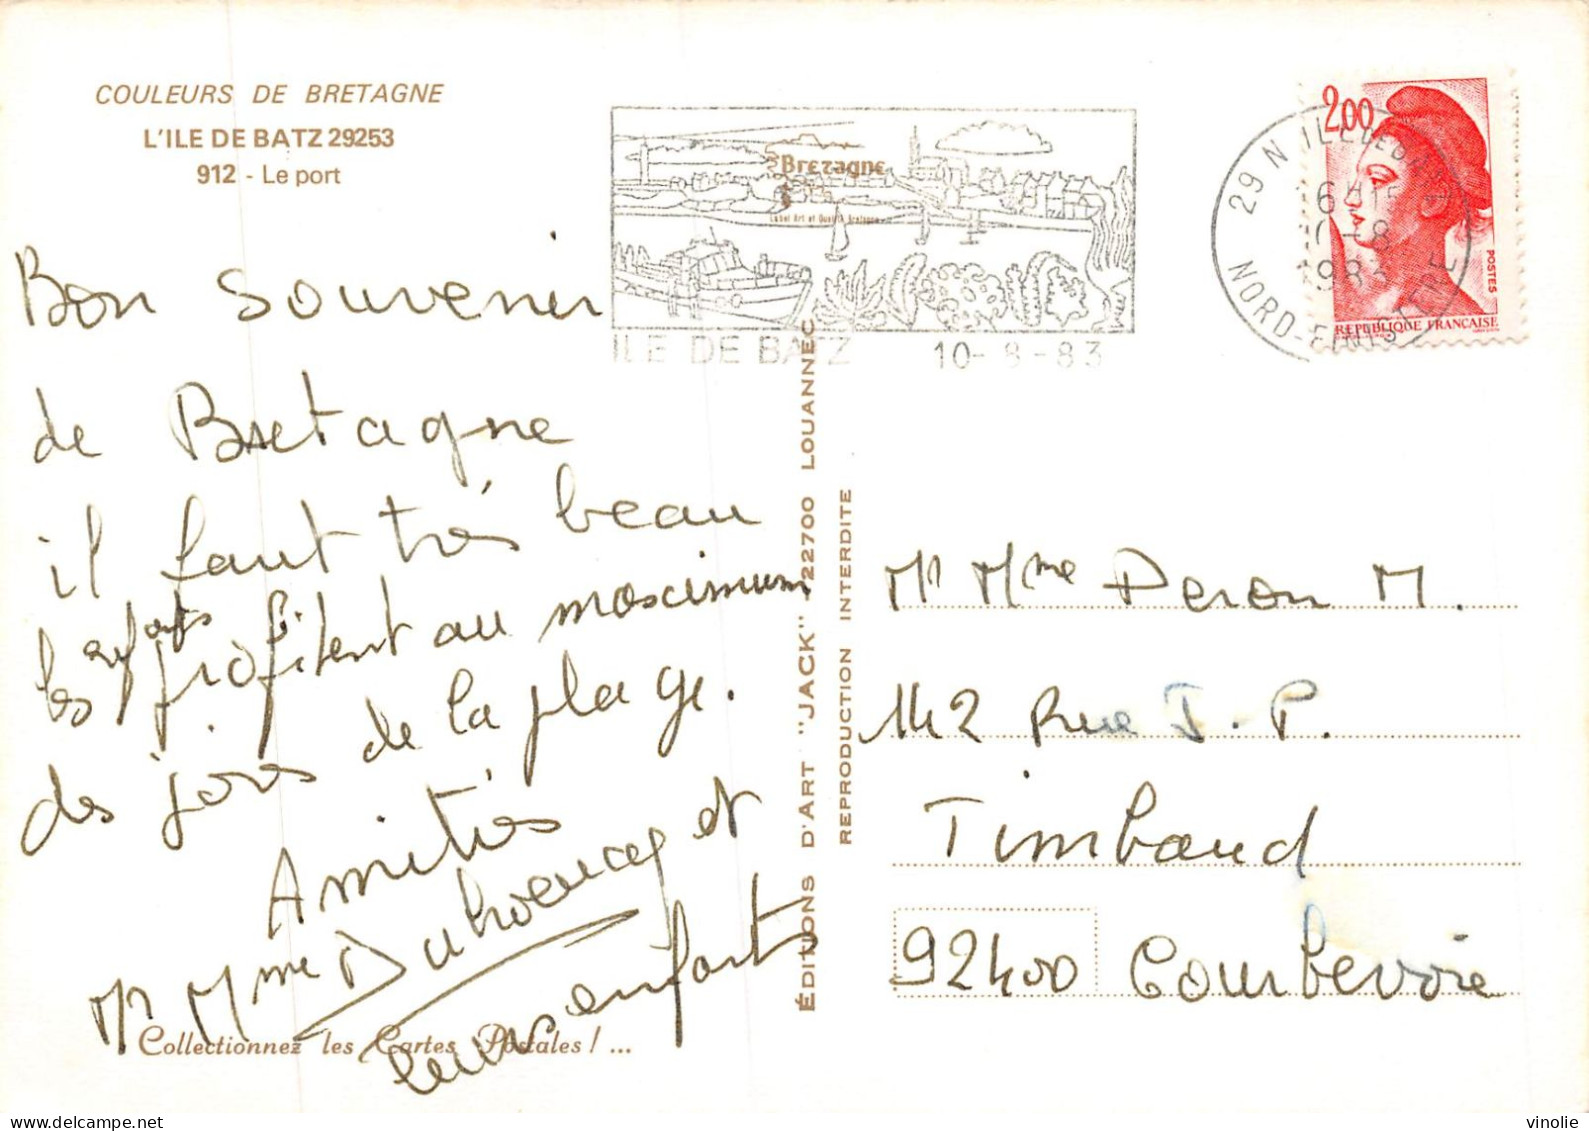 COULEURS DE BRETAGNE
L'ILE DE BATZ 29253
912 - Le port
Bon souvenir
de Bretagne
il faut très beau
les enfants profitent au maximum
des joies de la plage.
Amitiés
Mr Mme et
leurs enfants
Collectionnez les Cartes Postales ! ...
Brezagne
Label Art et Qualité Bretagne
ILE DE BATZ 10-8-83
ÉDITIONS D'ART "JACK" 22700 LOUANNEC
REPRODUCTION INTERDITE
29 N ILE DE BATZ
10-8
1983
NORD-FINISTERE
2,00
POSTES
REPUBLIQUE FRANÇAISE
Mr Mme Peron M.
142 Rue J. P.
Timbaud
92400 Courbevoie
vinolie